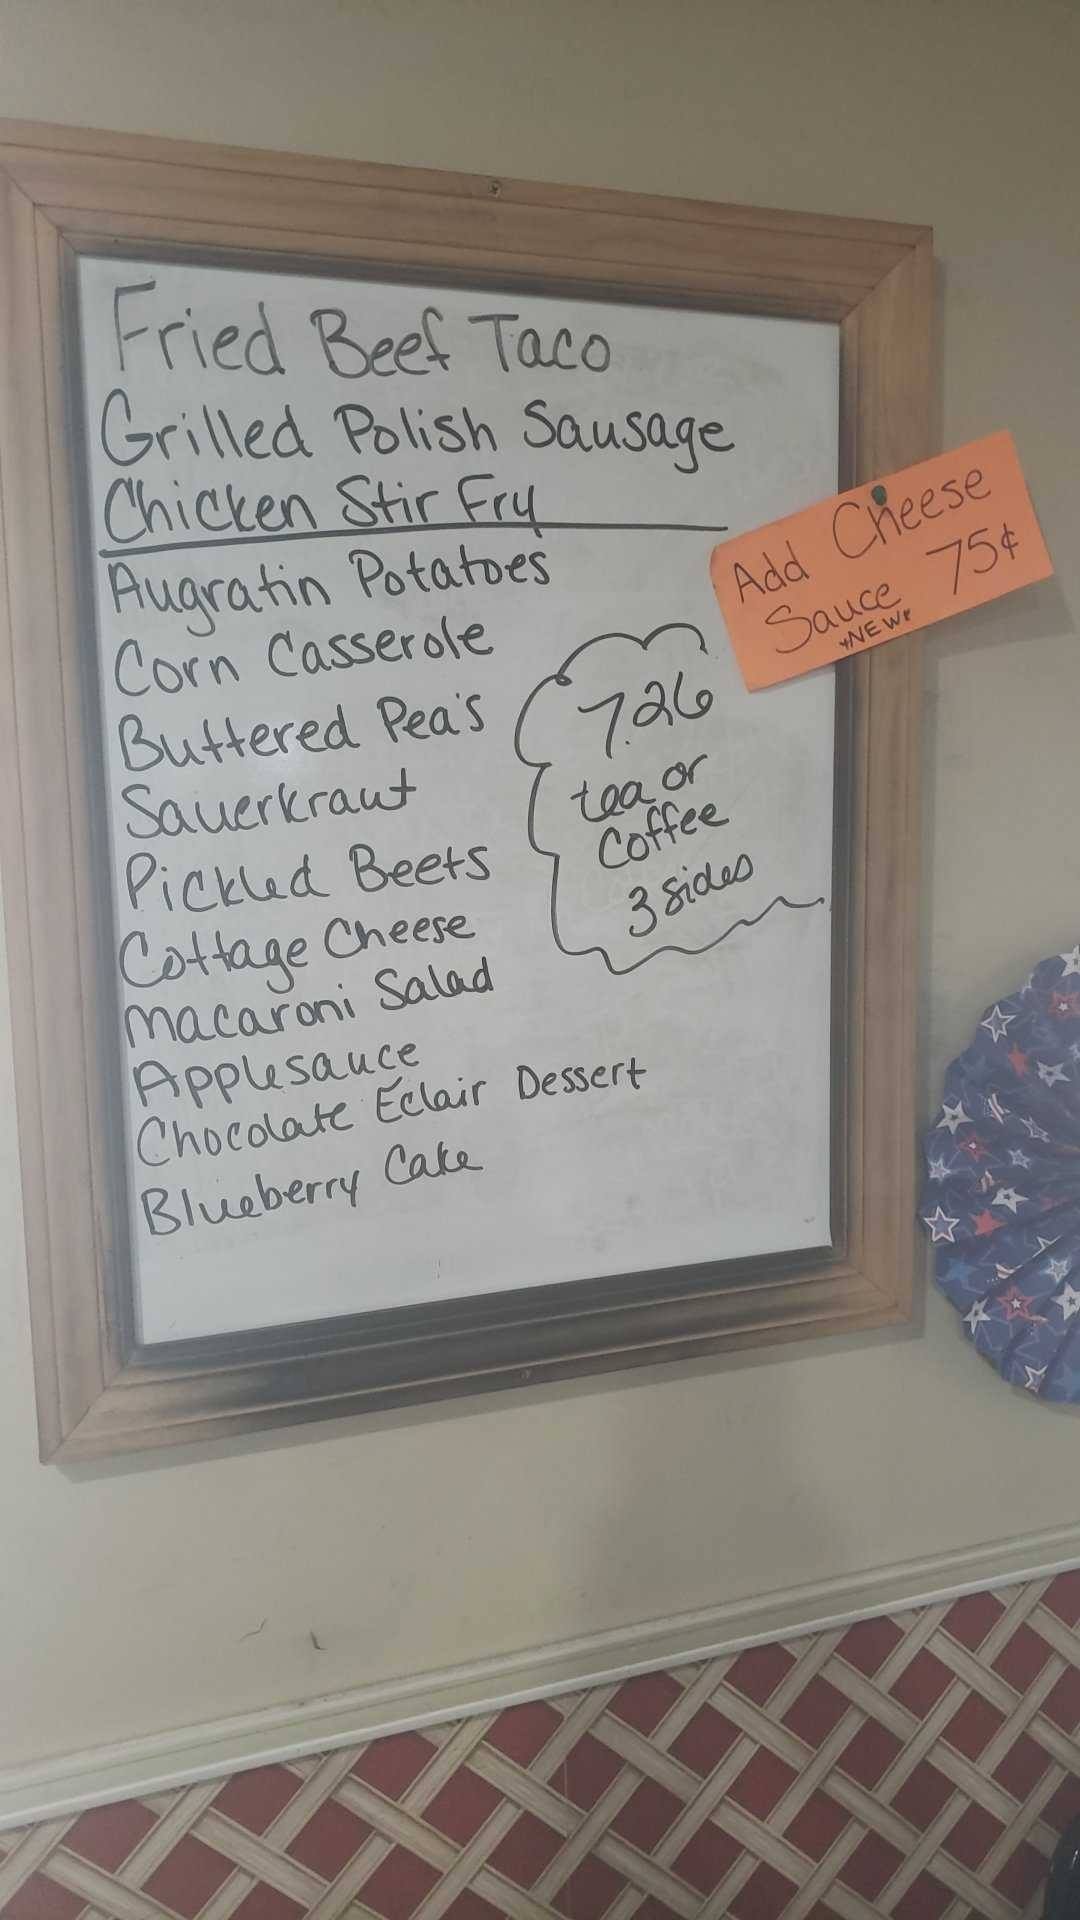 Fried Beef Taco
Grilled Polish Sausage
Chicken Stir Fry
Augratin Potatoes
Corn Casserole
Buttered Pea's
Sauerkraut
Pickled Beets
Cottage Cheese
Macaroni Salad
Applesauce
Chocolate Eclair Dessert
Blueberry Cake
7.26
tea or
Coffee
3 sides
Add Cheese
Sauce 75¢
*NEW*